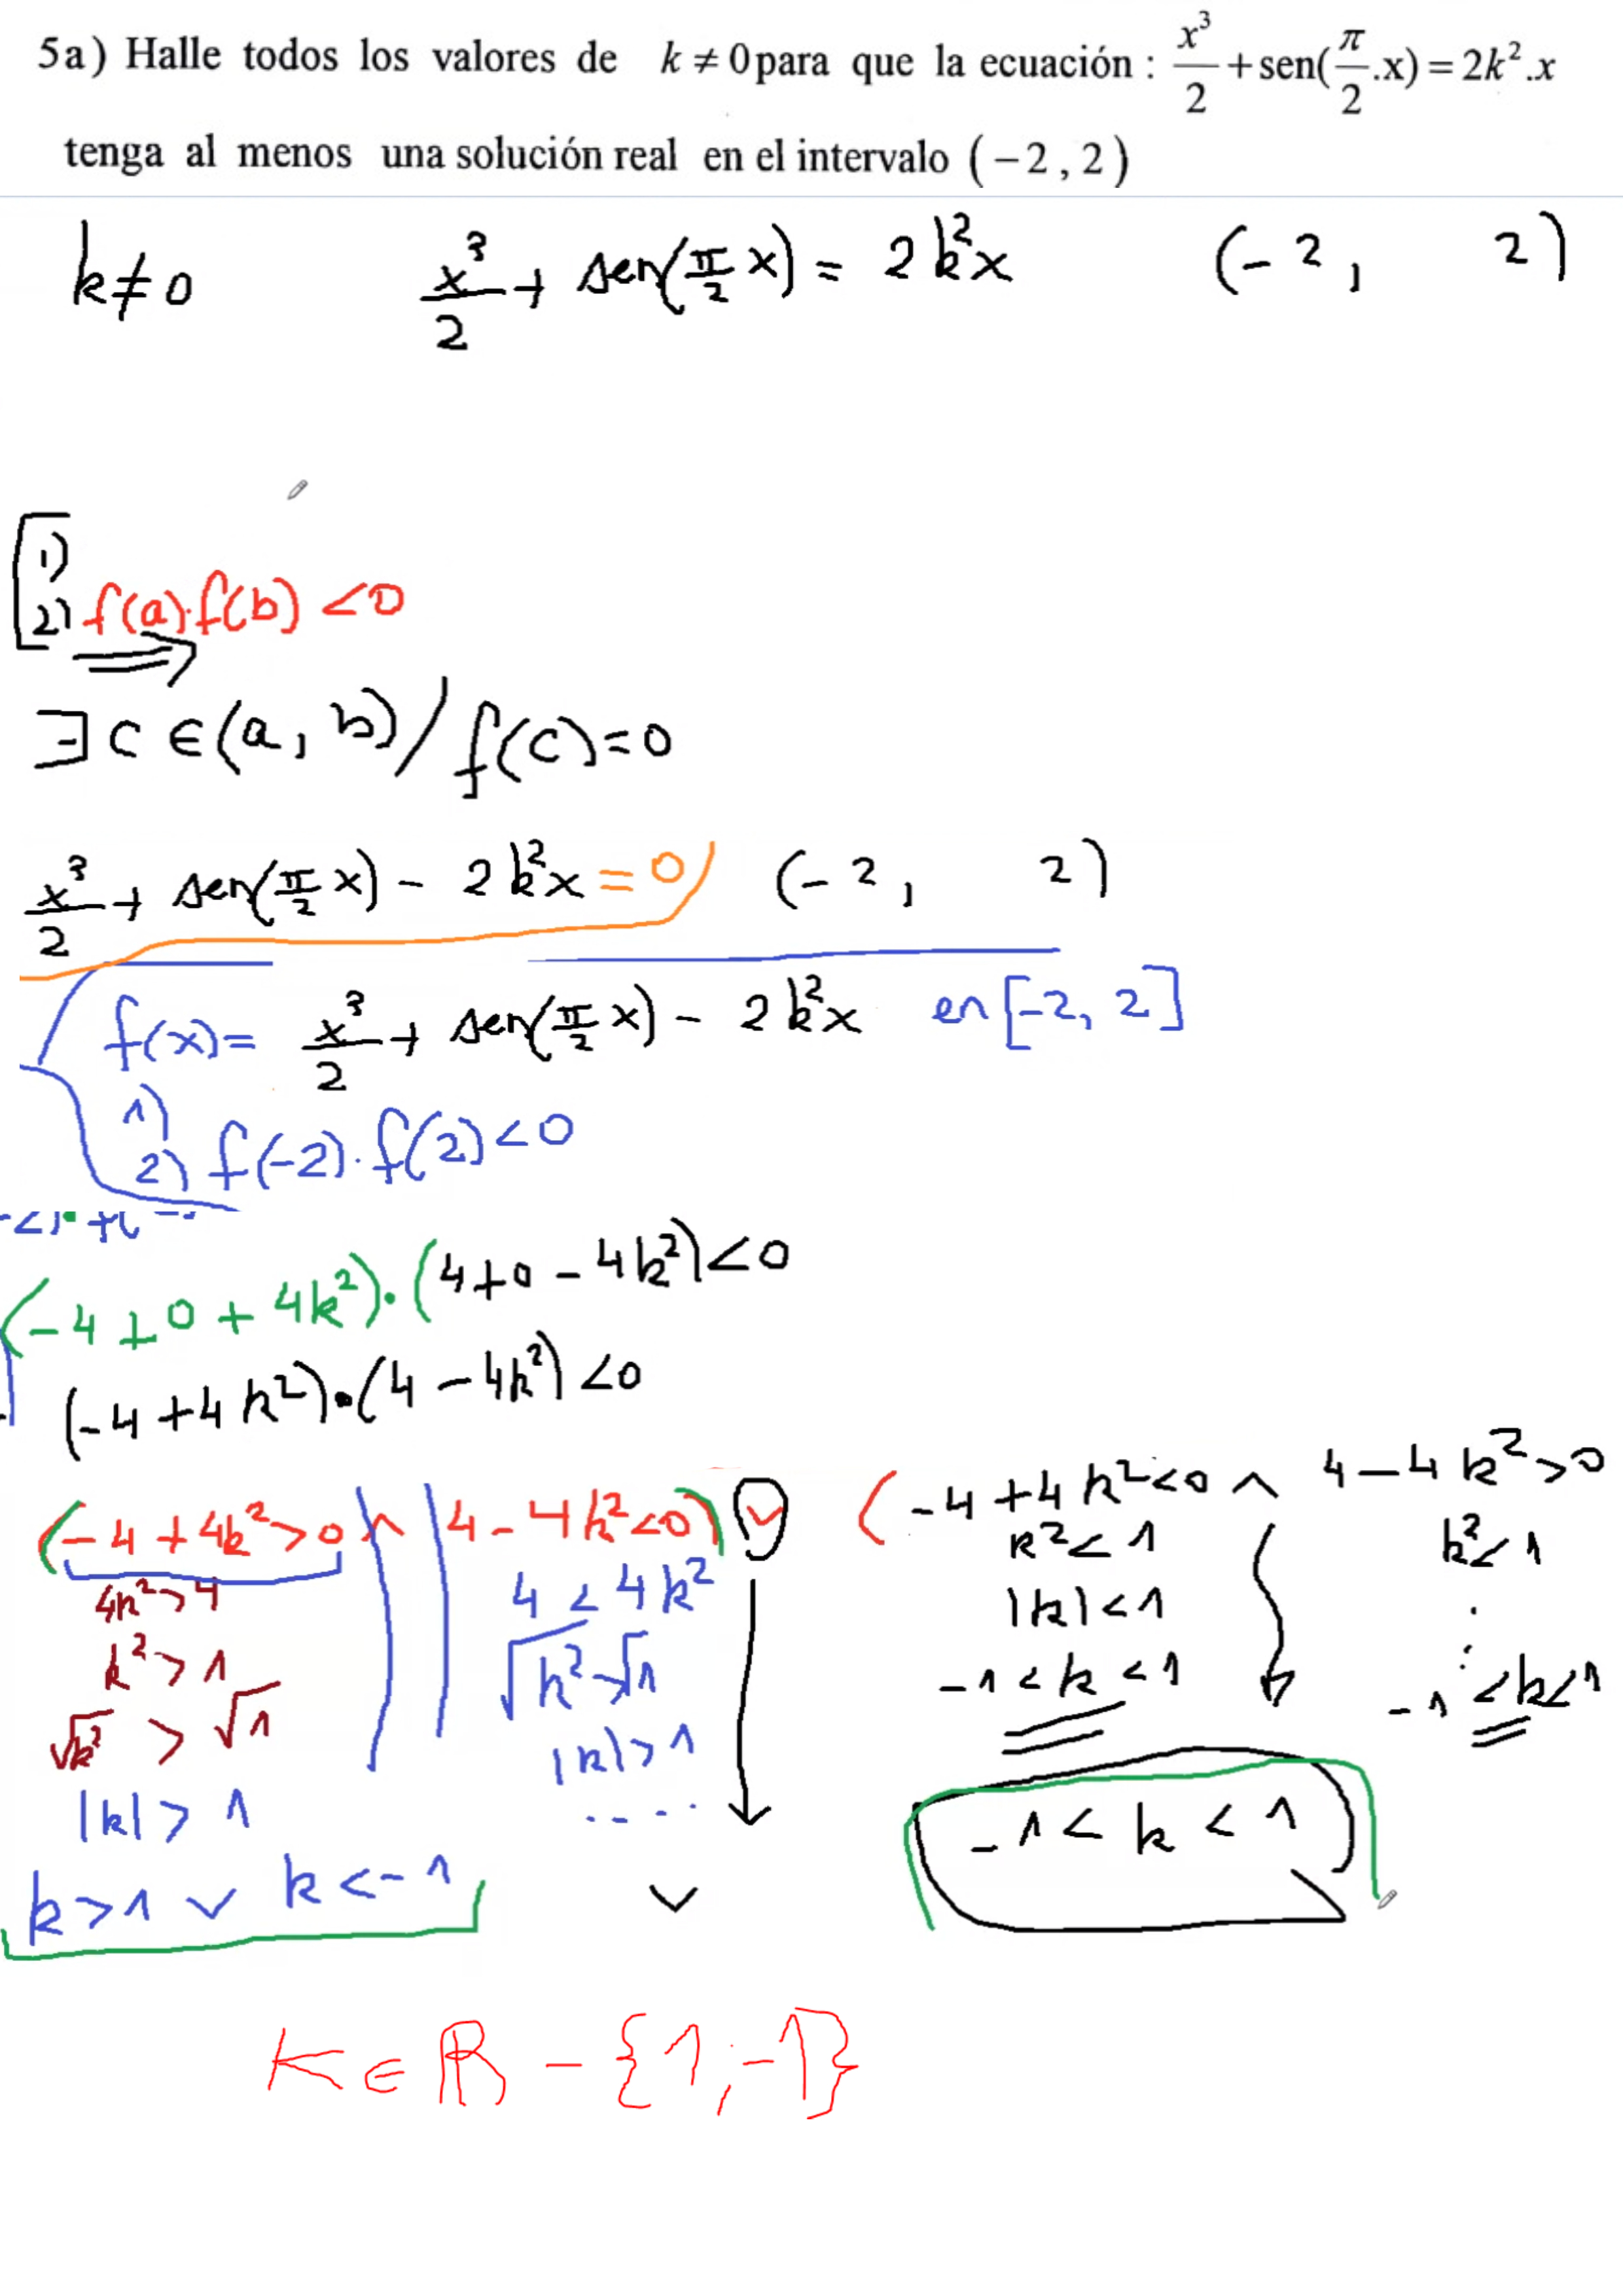 5a) Halle todos los valores de k ≠ 0 para que la ecuación : x³/2 + sen(π/2 .x) = 2k².x
tenga al menos una solución real en el intervalo (−2 , 2)
k≠0 x³/2 + sen(π/2 x) = 2k²x (−2, 2)
1)
2) f(a).f(b) <0
⟹
∃ c ∈ (a, b) / f(c)=0
x³/2 + sen(π/2 x) − 2k²x = 0 (−2, 2)
f(x)= x³/2 + sen(π/2 x) − 2k²x en [−2, 2]
1)
2) f(−2). f(2) <0
(−4 + 0 + 4k²).(4+0 − 4k²) <0
(−4 + 4k²).(4 − 4k²) <0
(−4 + 4k² > 0 ∧ 4 − 4k² <0) ∨ (−4 + 4k² <0 ∧ 4 − 4k² >0
4k² > 4 4 < 4k² k² < 1 k² < 1
k² > 1 √k² > √1 |k| < 1 .
√k² > √1 |k| > 1 −1 < k < 1 : −1 < k < 1
|k| > 1 .... −1 < k < 1
k > 1 ∨ k < −1 ∨
K ∈ ℝ − {1;−1}